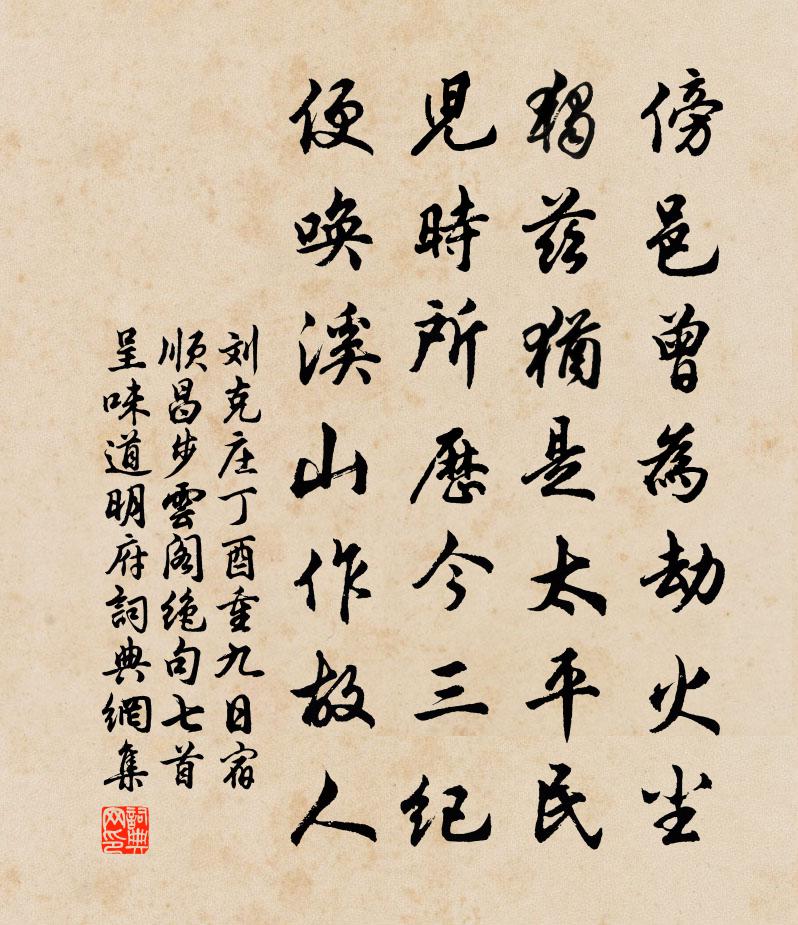 傍邑曾為劫火尘
獨茲猶是太平民
児時所歷今三纪
便喚溪山作故人
刘克庄丁酉重九日宿
顺昌步雲阁绝句七首
呈味道明府詞典網集
詞典网印